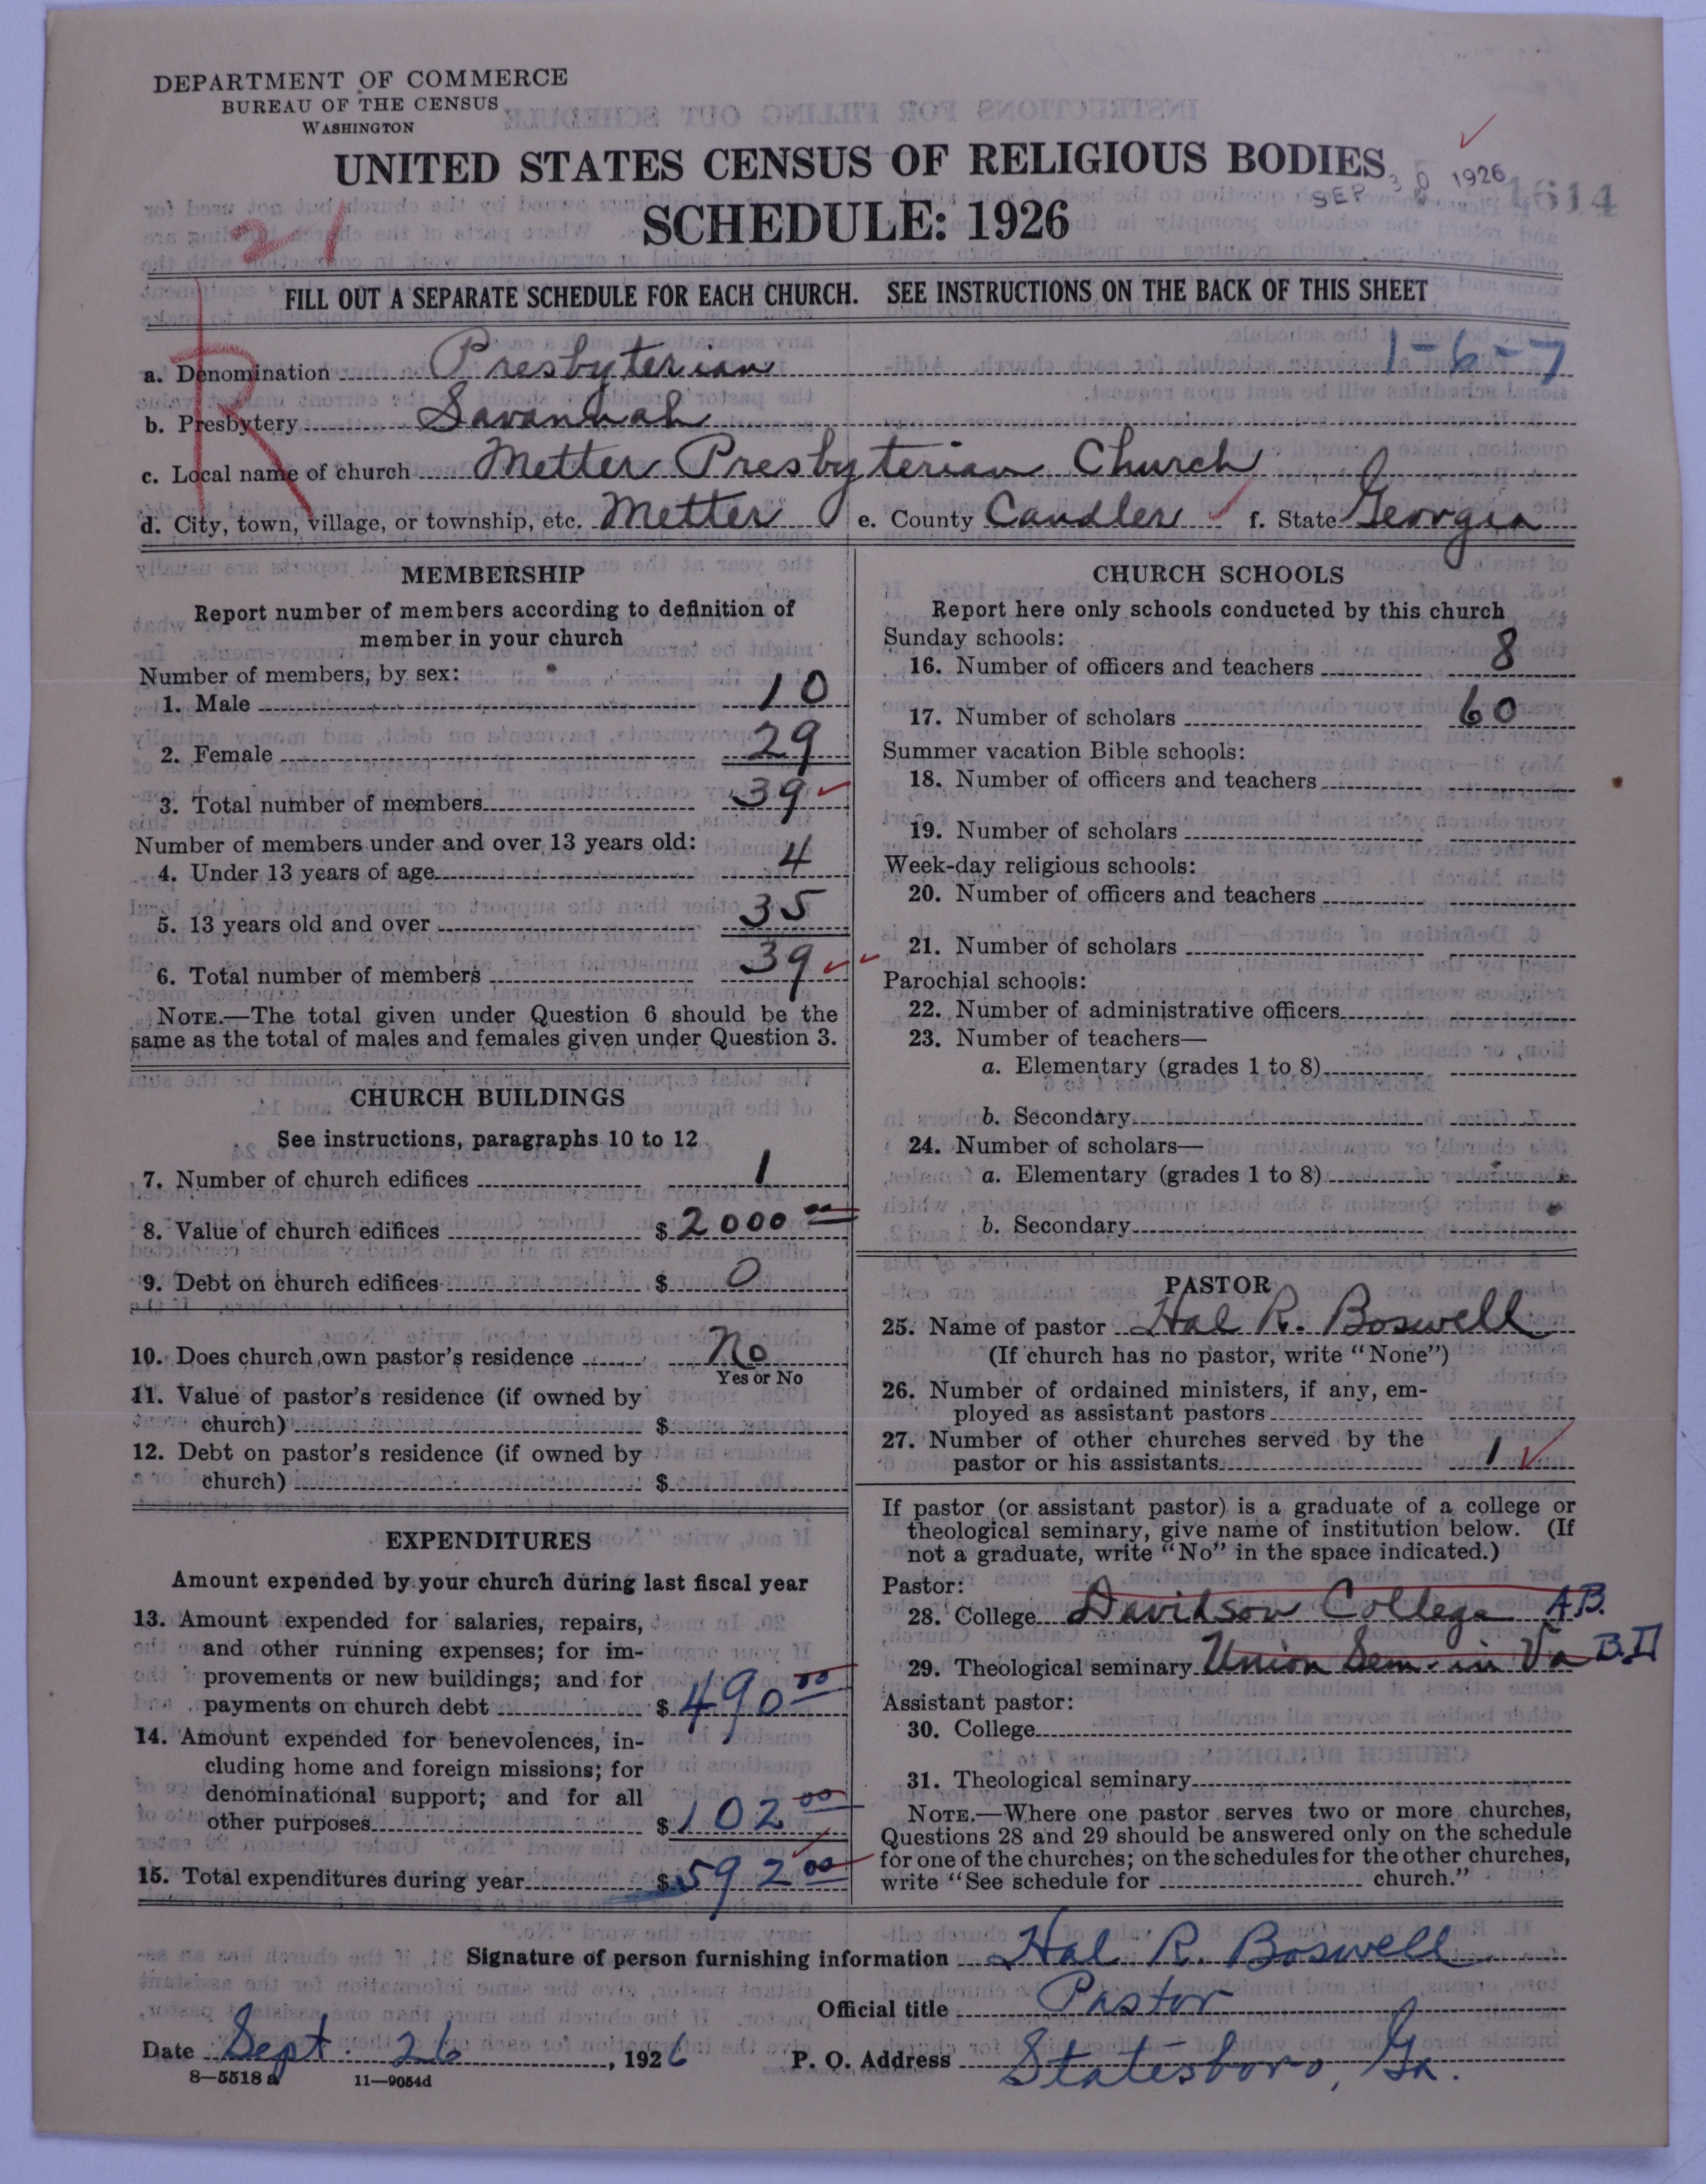 DEPARTMENT OF COMMERCE
BUREAU OF THE CENSUS
WASHINGTON
UNITED STATES CENSUS OF RELIGIOUS BODIES
SEP 30 1926
1614
SCHEDULE: 1926
21
FILL OUT A SEPARATE SCHEDULE FOR EACH CHURCH. SEE INSTRUCTIONS ON THE BACK OF THIS SHEET
R
1-6-7
a. Denomination Presbyterian
b. Presbytery Savannah
c. Local name of church Metter Presbyterian Church
d. City, town, village, or township, etc. Metter e. County Candler f. State Georgia
MEMBERSHIP
Report number of members according to definition of
member in your church
Number of members, by sex:
1. Male 10
2. Female 29
3. Total number of members 39
Number of members under and over 13 years old:
4. Under 13 years of age 4
5. 13 years old and over 35
6. Total number of members 39
NOTE.—The total given under Question 6 should be the
same as the total of males and females given under Question 3.
CHURCH BUILDINGS
See instructions, paragraphs 10 to 12
7. Number of church edifices 1
8. Value of church edifices $ 2000 00
9. Debt on church edifices $ 0
10. Does church own pastor's residence No
Yes or No
11. Value of pastor's residence (if owned by
church) $
12. Debt on pastor's residence (if owned by
church) $
EXPENDITURES
Amount expended by your church during last fiscal year
13. Amount expended for salaries, repairs,
and other running expenses; for im-
provements or new buildings; and for
payments on church debt $ 490 00
14. Amount expended for benevolences, in-
cluding home and foreign missions; for
denominational support; and for all
other purposes $ 102 00
15. Total expenditures during year $ 592 00
CHURCH SCHOOLS
Report here only schools conducted by this church
Sunday schools:
16. Number of officers and teachers 8
17. Number of scholars 60
Summer vacation Bible schools:
18. Number of officers and teachers
19. Number of scholars
Week-day religious schools:
20. Number of officers and teachers
21. Number of scholars
Parochial schools:
22. Number of administrative officers
23. Number of teachers—
a. Elementary (grades 1 to 8)
b. Secondary
24. Number of scholars—
a. Elementary (grades 1 to 8)
b. Secondary
PASTOR
25. Name of pastor Hal R. Boswell
(If church has no pastor, write "None")
26. Number of ordained ministers, if any, em-
ployed as assistant pastors
27. Number of other churches served by the
pastor or his assistants 1
If pastor (or assistant pastor) is a graduate of a college or
theological seminary, give name of institution below. (If
not a graduate, write "No" in the space indicated.)
Pastor:
28. College Davidson College A.B.
29. Theological seminary Union Sem. in Va B.D
Assistant pastor:
30. College
31. Theological seminary
NOTE.—Where one pastor serves two or more churches,
Questions 28 and 29 should be answered only on the schedule
for one of the churches; on the schedules for the other churches,
write "See schedule for church."
Signature of person furnishing information Hal R. Boswell
Official title Pastor
Date Sept. 26, 1926 P. O. Address Statesboro, Ga.
8—5518 a 11—9054d